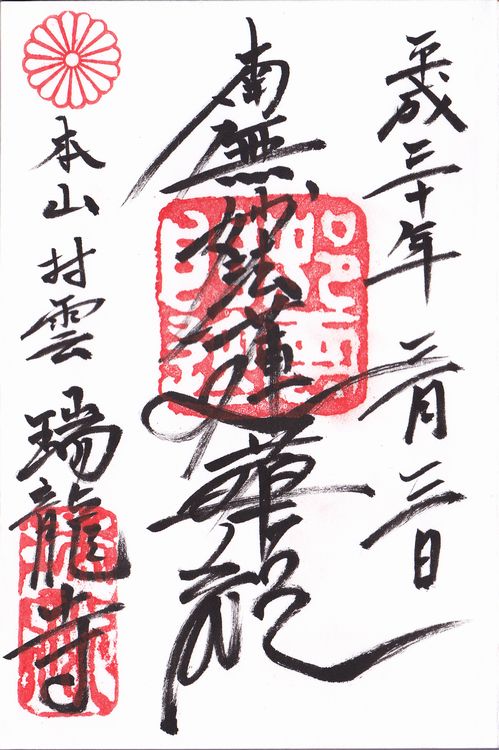 平成三十年二月三日
南無妙法蓮華経
本山村雲瑞龍寺